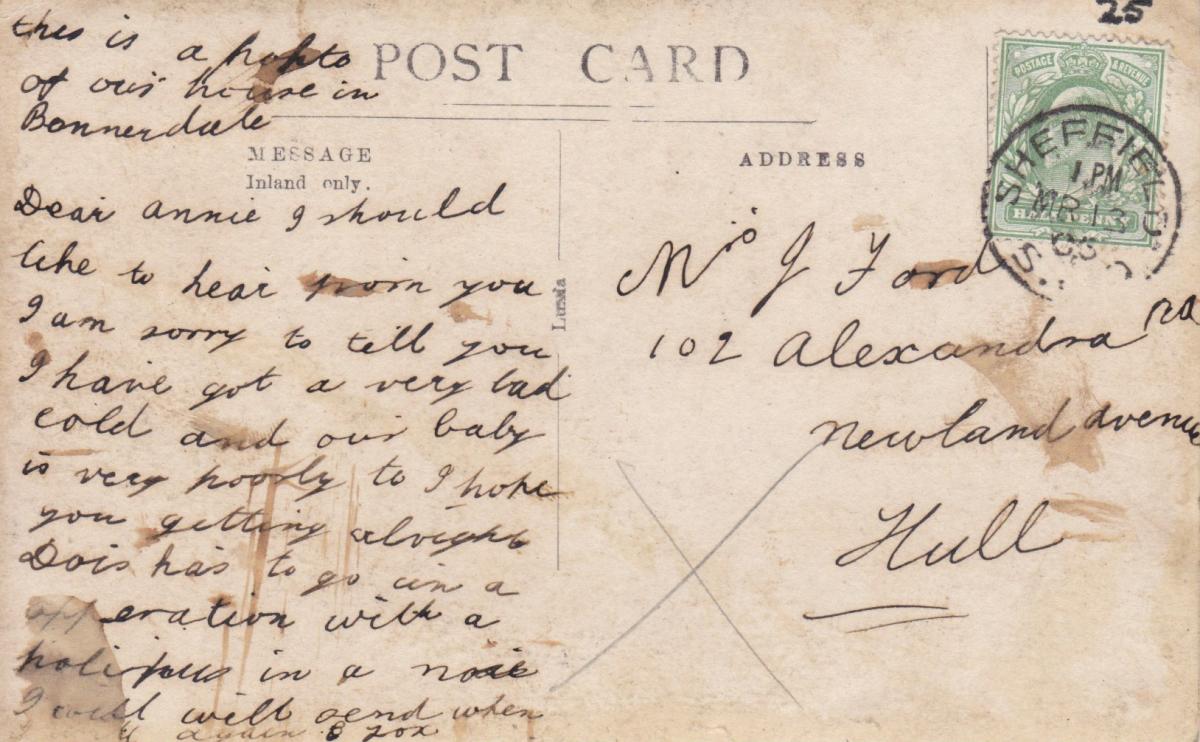 25
this is a hopto
of our house in
Bonnerdale
POST CARD
MESSAGE
Inland only.
ADDRESS
POSTAGE & REVENUE
HALFPENNY
SHEFFIELD
1 PM
MR 13
Dear annie I should
like to hear from you
I am sorry to tell you
I have got a very bad
cold and our baby
is very poorly to I hope
you getting alright
Dois has to go in a
opperation with a
in a nose
I will will send when
again
Lussia
Mrs J Ford
102 Alexandra Rd
newland avenue
Hull